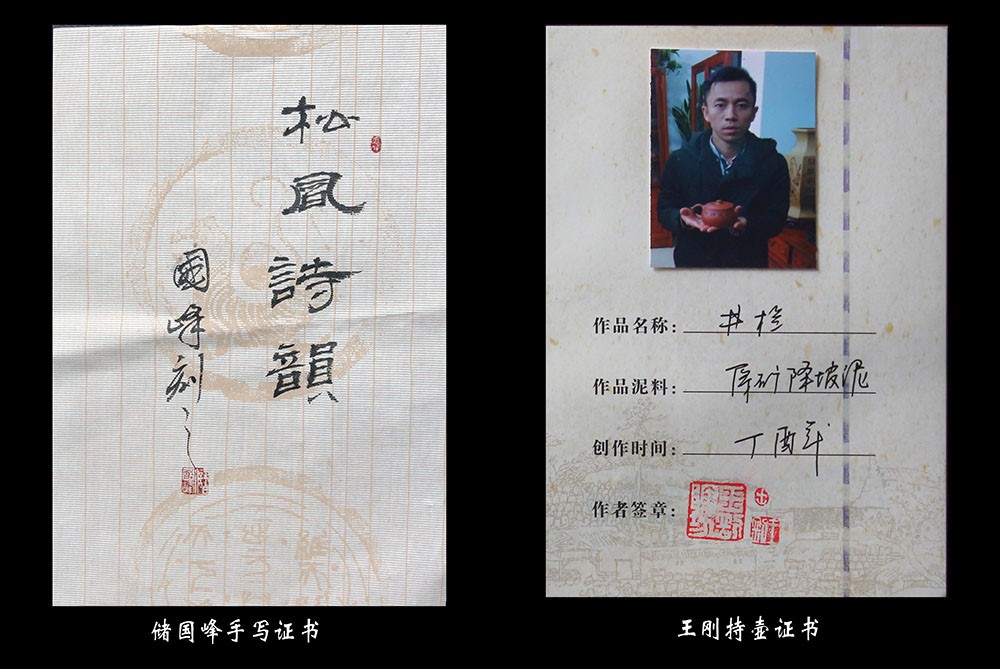 松風詩韻
國峰刻之
储国峰手写证书
作品名称：井栏
作品泥料：原矿降坡泥
创作时间：丁酉年
作者签章：
王刚持壶证书